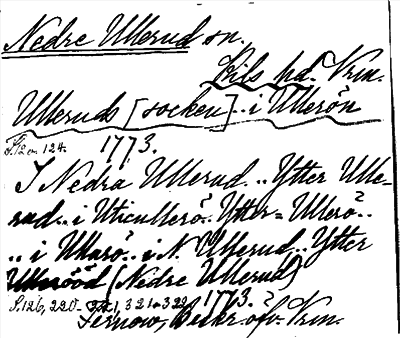 Nedre Ullerud sn.
Kils hd. Vrm.
Ulleruds [socken].. i Ullerön
S. 12 124. 1773.
I Nedra Ullerud.. Ytter Ulle-
rud.. i Uticullerö.. Ytter-Ullerö..
.. i Ullarö.. i N. Ullerud.. Ytter
Ullerööd (Nedre Ullerud)
S. 126, 220- 321 o 322 1773.
Fernow, Beskr. öfv. Vrm.